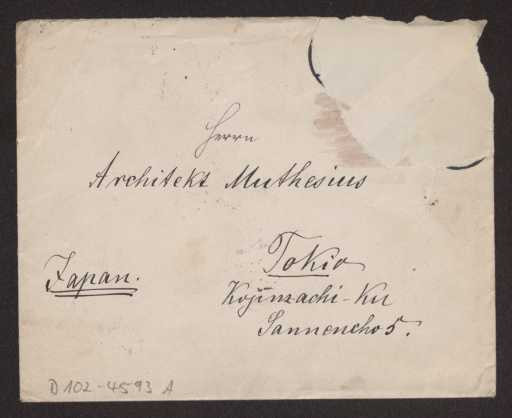 Herrn
Architekt Muthesius
Tokio
Japan.
Kojinzachi-Ku
Sannencho 5.
D 102-4593 A